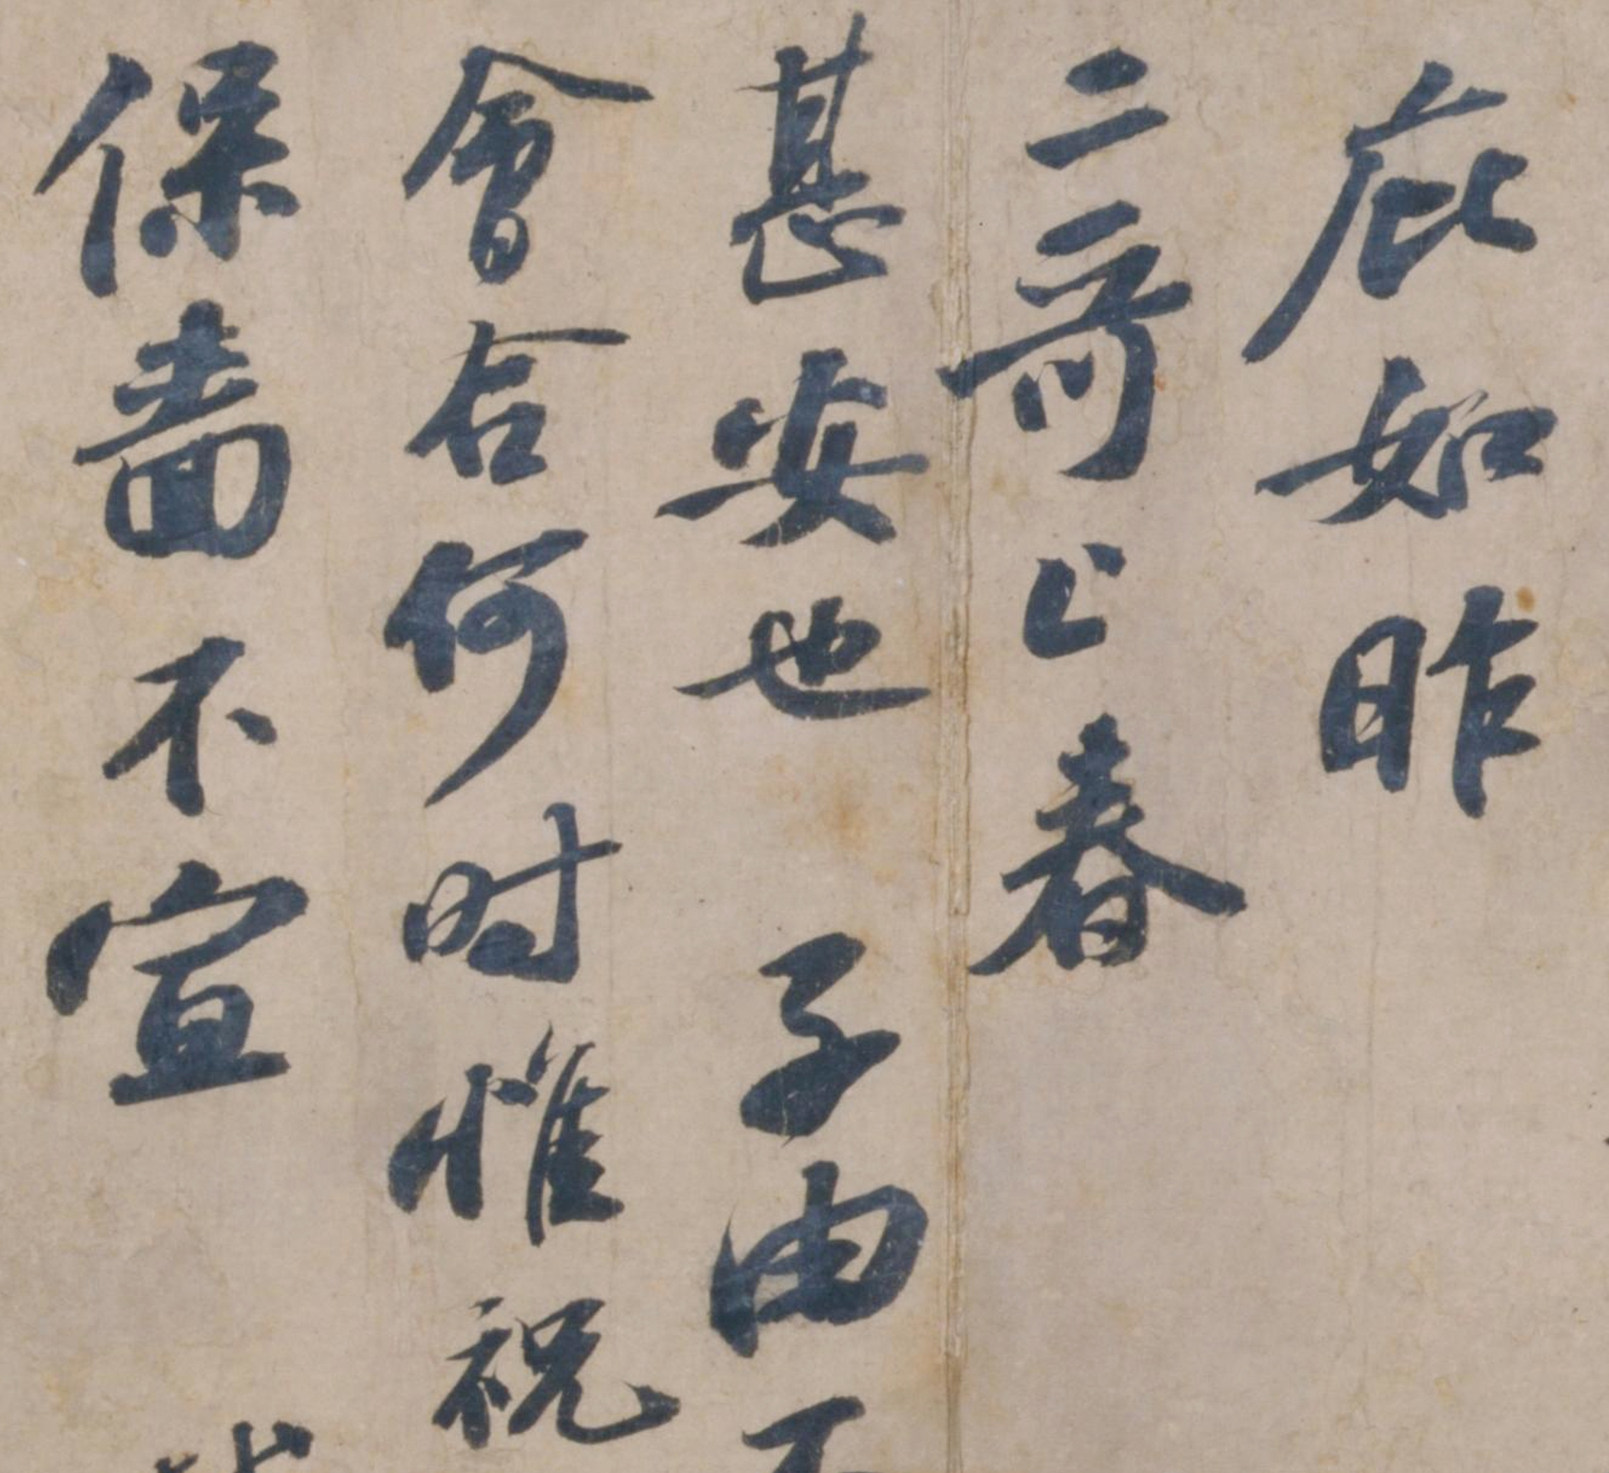 庇如昨
二哥上春
甚安也 子由不
會合何時惟祝
保嗇不宣